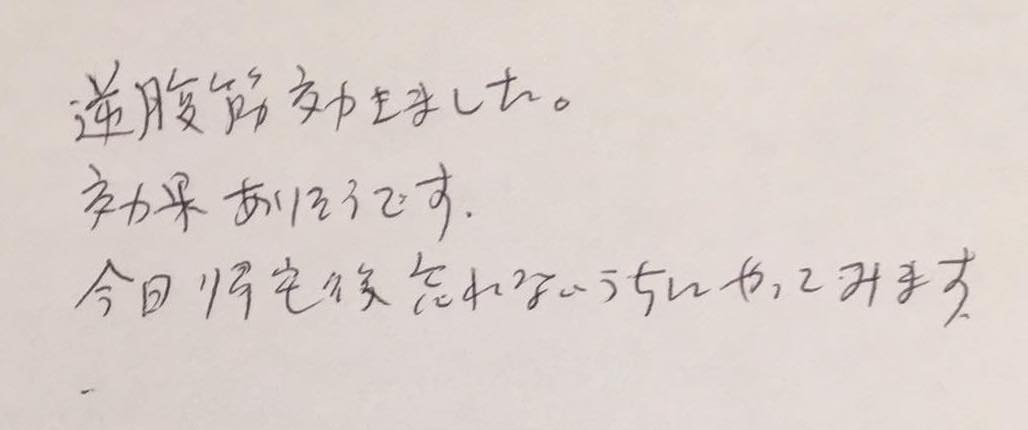 逆腹筋効きました。
効果ありそうです.
今日帰宅後忘れないうちにやってみます.